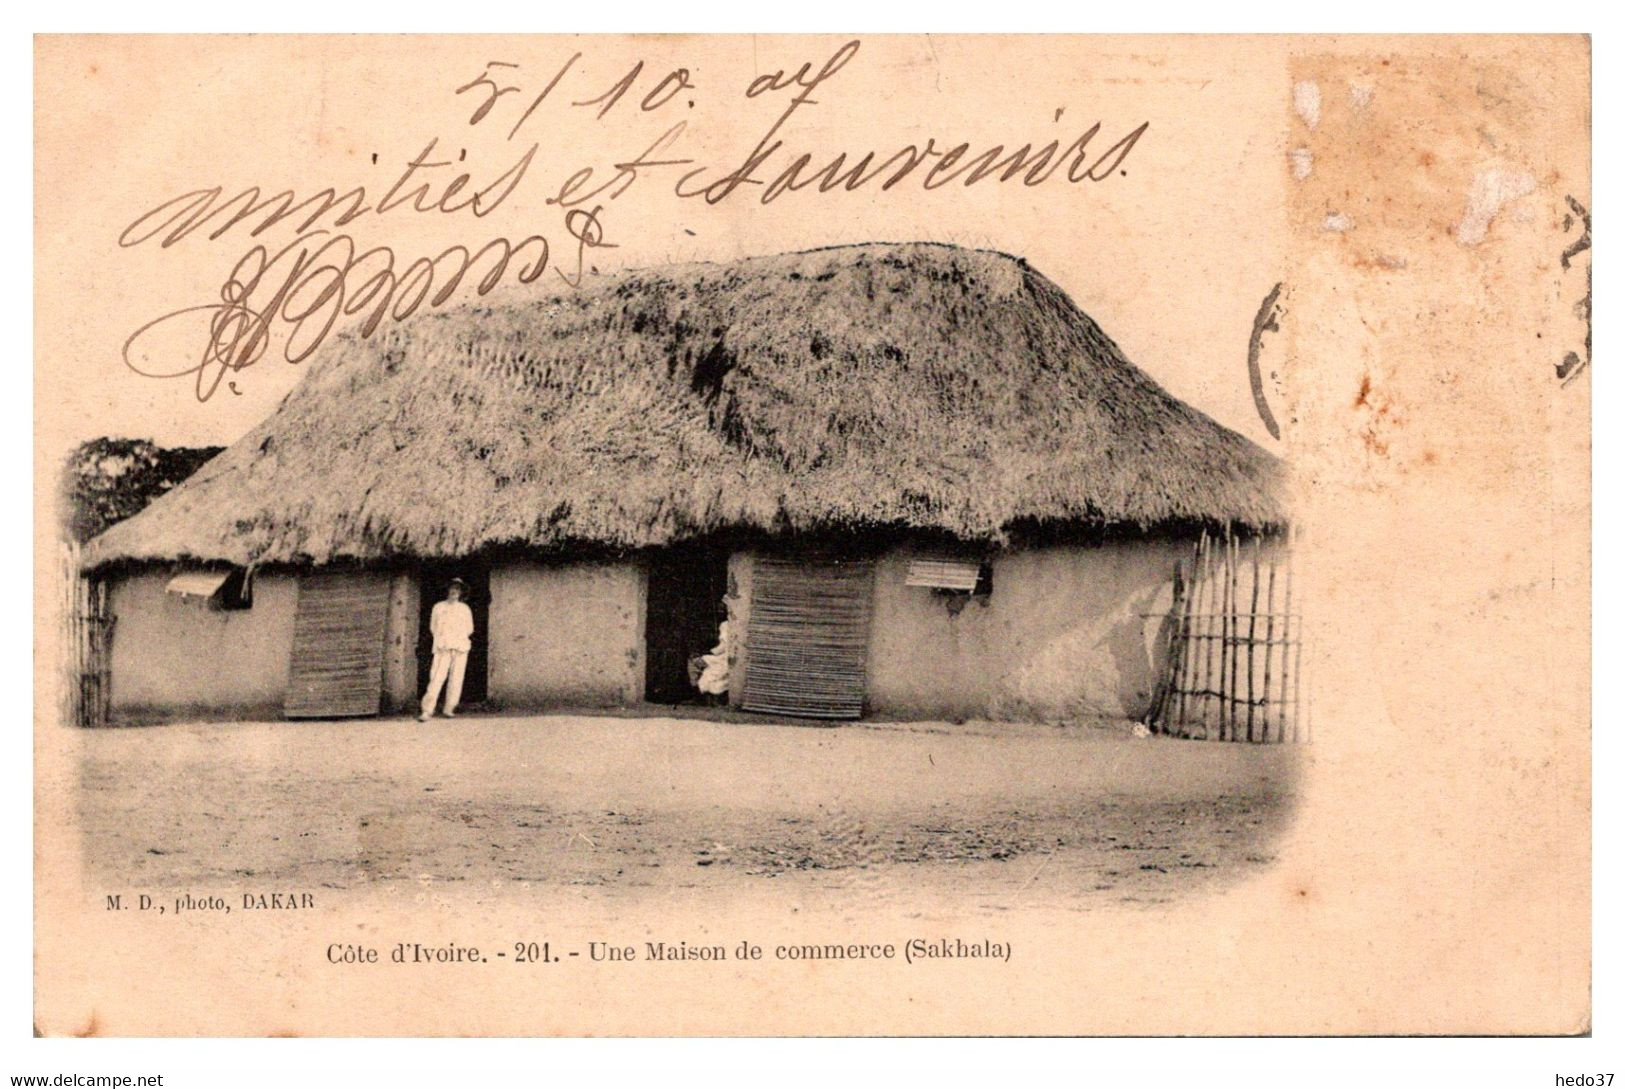 5/10. 04
amitiés et souvenirs.
M. D., photo, DAKAR
Côte d'Ivoire. - 201. - Une Maison de commerce (Sakhala)
www.delcampe.net
hedo37